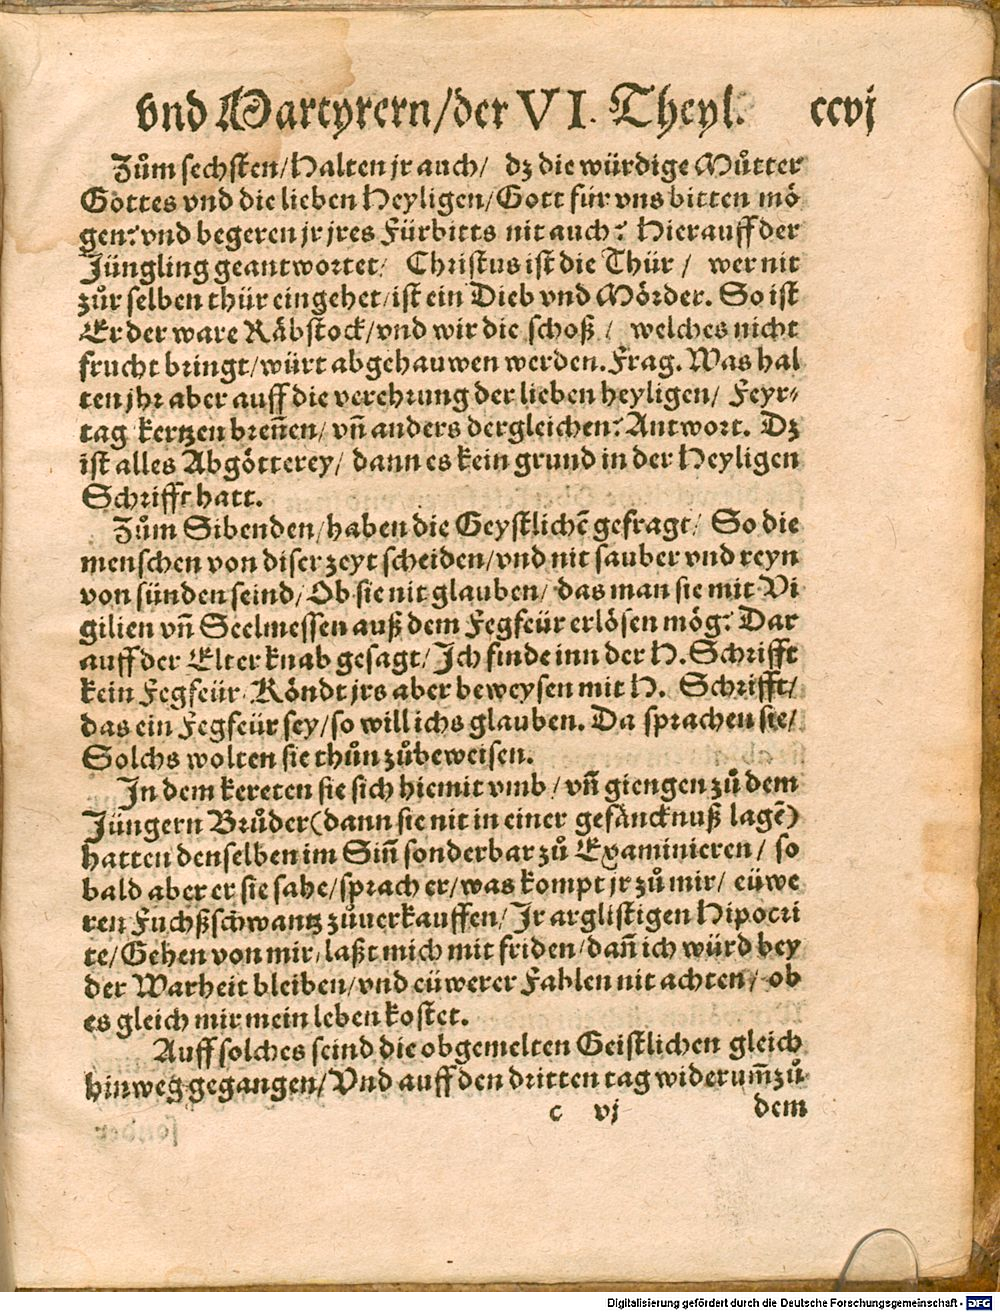 vnd Martyrern/der VI. Theyl. ccvj
Zům sechsten/Halten jr auch/ dz die würdige Můtter
Gottes vnd die lieben Heyligen/Gott für vns bitten mö
gen? vnd begeren jr jres Fürbitts nit auch? Hierauff der
Jüngling geantwortet/ Christus ist die Thür / wer nit
zůr selben thür eingehet/ist ein Dieb vnd Mörder. So ist
Er der ware Räbstock/vnd wir die schoß / welches nicht
frucht bringt/würt abgehauwen werden. Frag. Was hal
ten jhr aber auff die verehrung der lieben heyligen/ Feyr⸗
tag kertzen breñen/ vñ anders dergleichen? Antwort. Dz
ist alles Abgötterey/ dann es kein grund in der Heyligen
Schrifft hatt.
Zům Sibenden/haben die Geystlichẽ gefragt/ So die
menschen von diser zeyt scheiden/vnd nit sauber vnd reyn
von sünden seind/ Ob sie nit glauben/ das man sie mit Vi
gilien vñ Seelmessen auß dem Fegfeür erlösen mög? Dar
auff der Elter knab gesagt/ Ich finde inn der H. Schrifft
kein Fegfeür/ Köndt jrs aber beweysen mit H. Schrifft/
das ein Fegfeür sey/so will ichs glauben. Da sprachen sie/
Solchs wolten sie thůn zůbeweisen.
In dem kereten sie sich hiemit vmb / vñ giengen zů dem
Jüngern Brůder(dann sie nit in einer gefäncknuß lagẽ)
hatten denselben im Siñ sonderbar zů Examinieren / so
bald aber er sie sahe/sprach er/was kompt jr zů mir/ eüwe
ren Fuchßschwantz zůuerkauffen/ Ir arglistigen Hipocri
te/Gehen von mir/laßt mich mit friden/dañ ich würd bey
der Warheit bleiben/vnd eüwerer Fahlen nit achten/ ob
es gleich mir mein leben kostet.
Auff solches seind die obgemelten Geistlichen gleich
hinweg gegangen/Vnd auff den dritten tag widerum̃ zů
c vj dem
Digitalisierung gefördert durch die Deutsche Forschungsgemeinschaft - DFG